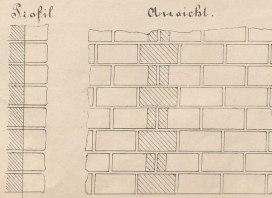 Profil
Ansicht.